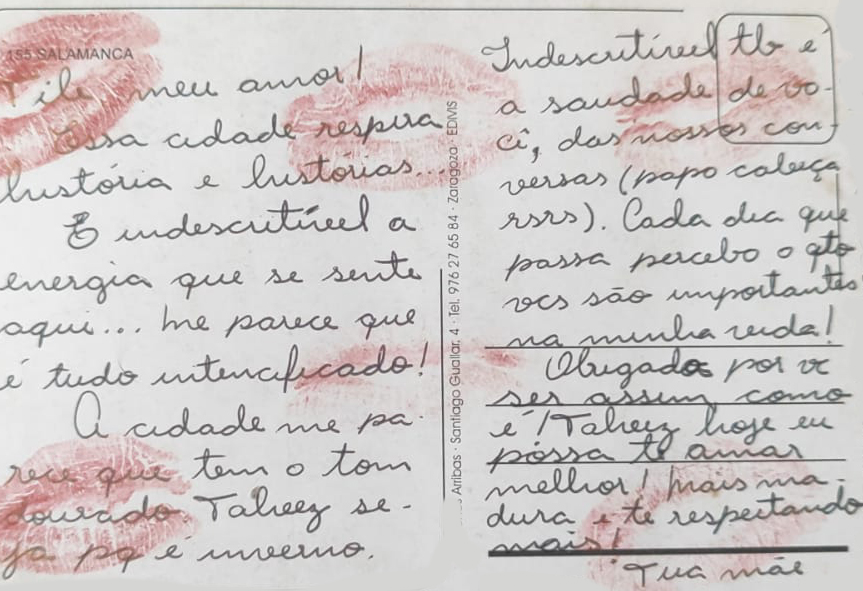 155 SALAMANCA
Tile meu amor!
Essa cidade respira
história e histórias...
É indescritível a
energia que se sente
aqui... me parece que
é tudo intencificado!
A cidade me pa-
rece que tem o tom
dourado. Talvez se-
ja pq é inverno.
Arribas · Santiago Guallar, 4 · Tel. 976 27 65 84 · Zaragoza · EDIVIS
Indescritível tb é
a saudade de vo-
cê, das nossas con-
versas (papo cabeça
rsrs). Cada dia que
passa percebo o qto
vcs são importantes
na minha vida!
Obrigada por vc
ser assim como
é! Talvez hoje eu
possa te amar
melhor! Mais ma-
dura e te respeitando
mais!
Tua mãe